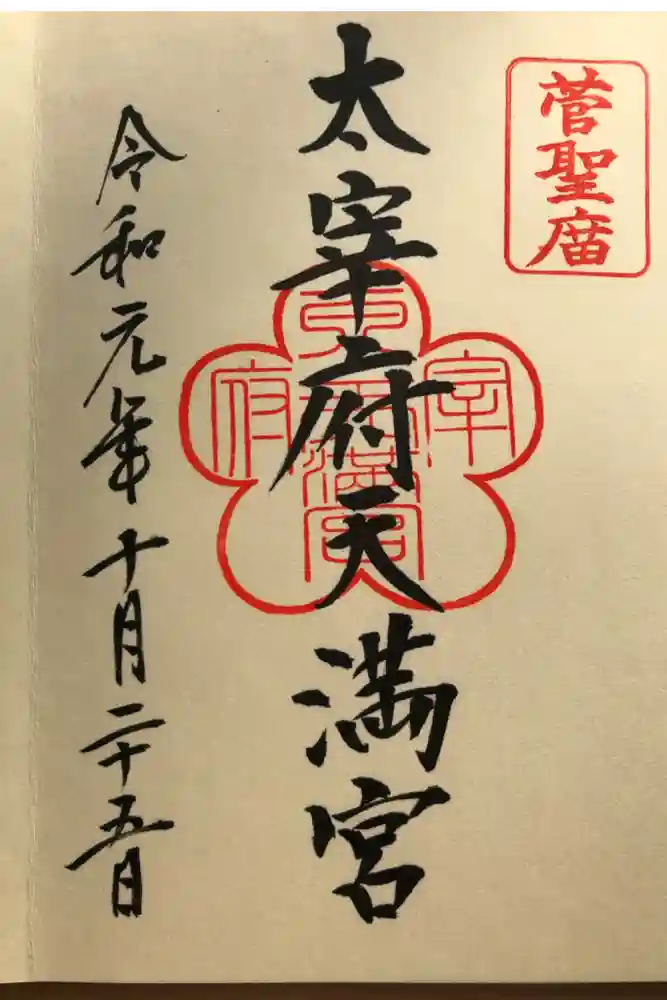 菅聖庿
太宰府天満宮
令和元年十月二十五日